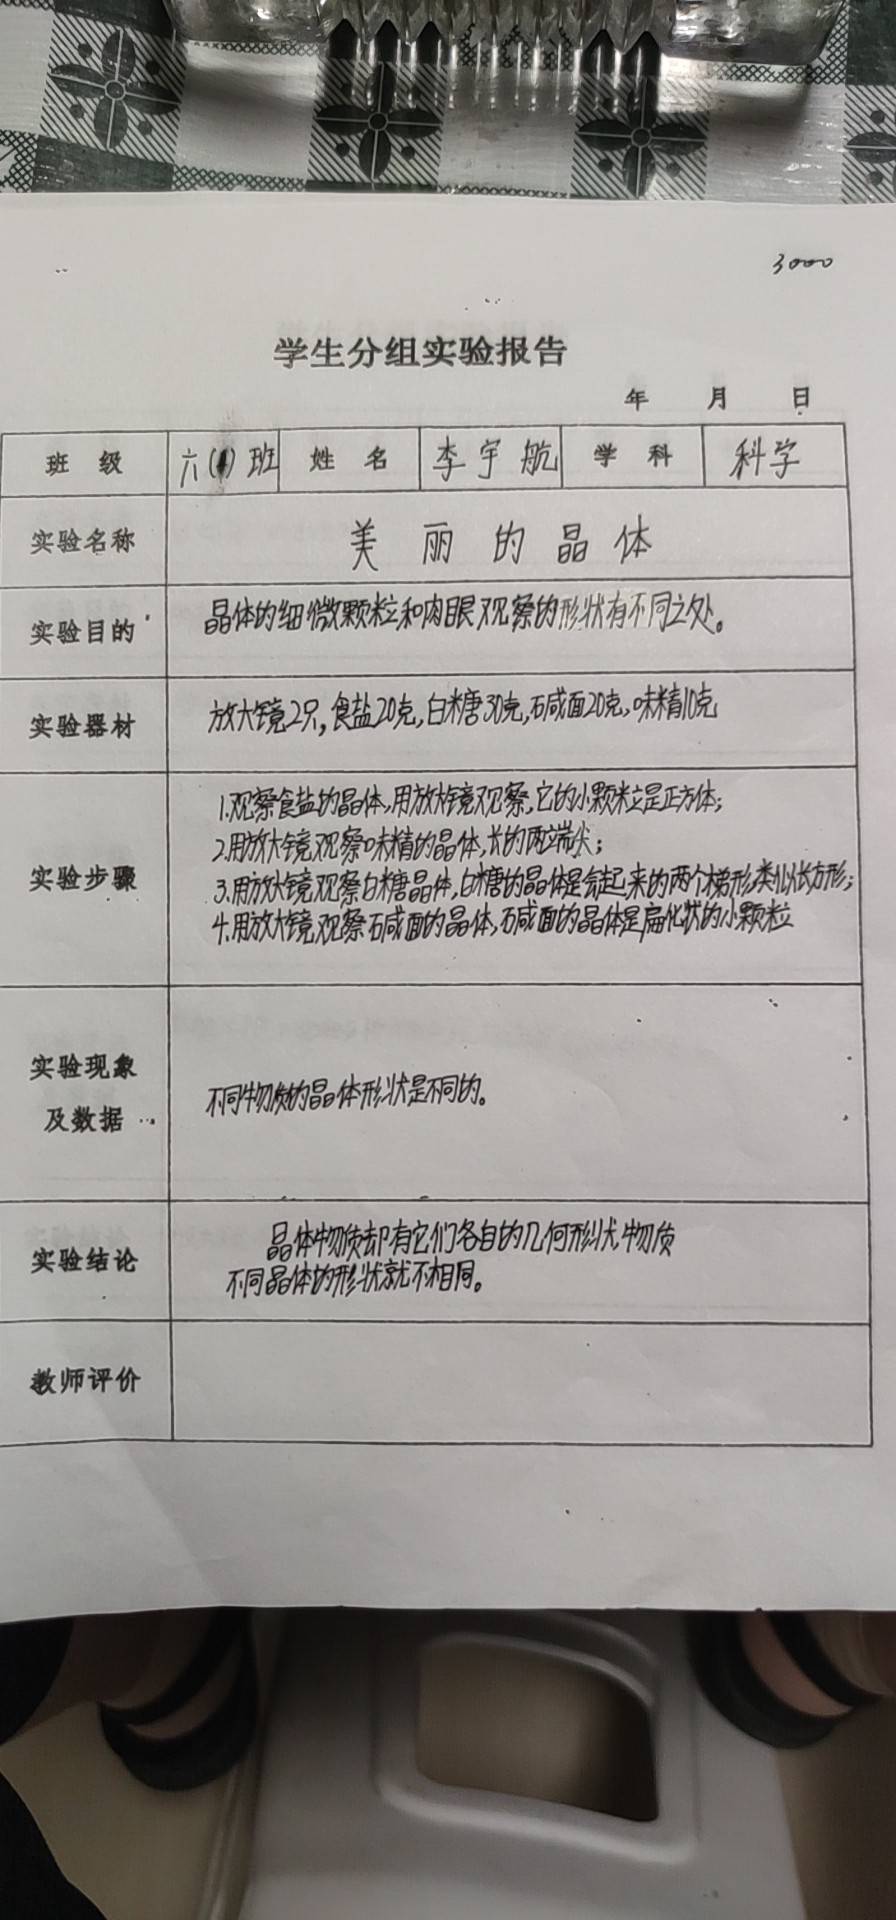 3000
学生分组实验报告
年 月 日
班级 六( )班 姓名 李宇航 学科 科学
实验名称 美丽的晶体
实验目的 晶体的细微颗粒和肉眼观察的形状有不同之处。
实验器材 放大镜2只,食盐20克,白米糖30克,石咸面20克,味精10克
实验步骤
1.观察食盐的晶体,用放大镜观察,它的小颗粒是正方体;
2.用放大镜观察味精的晶体,长的两端尖;
3.用放大镜观察白糖晶体,白糖的晶体是合起来的两个梯形,类似长方形;
4.用放大镜观察石咸面的晶体,石咸面的晶体是扁化状的小颗粒
实验现象
及数据
不同物质的晶体形状是不同的。
实验结论
晶体物质却有它们各自的几何形状,物质
不同晶体的形状就不相同。
教师评价